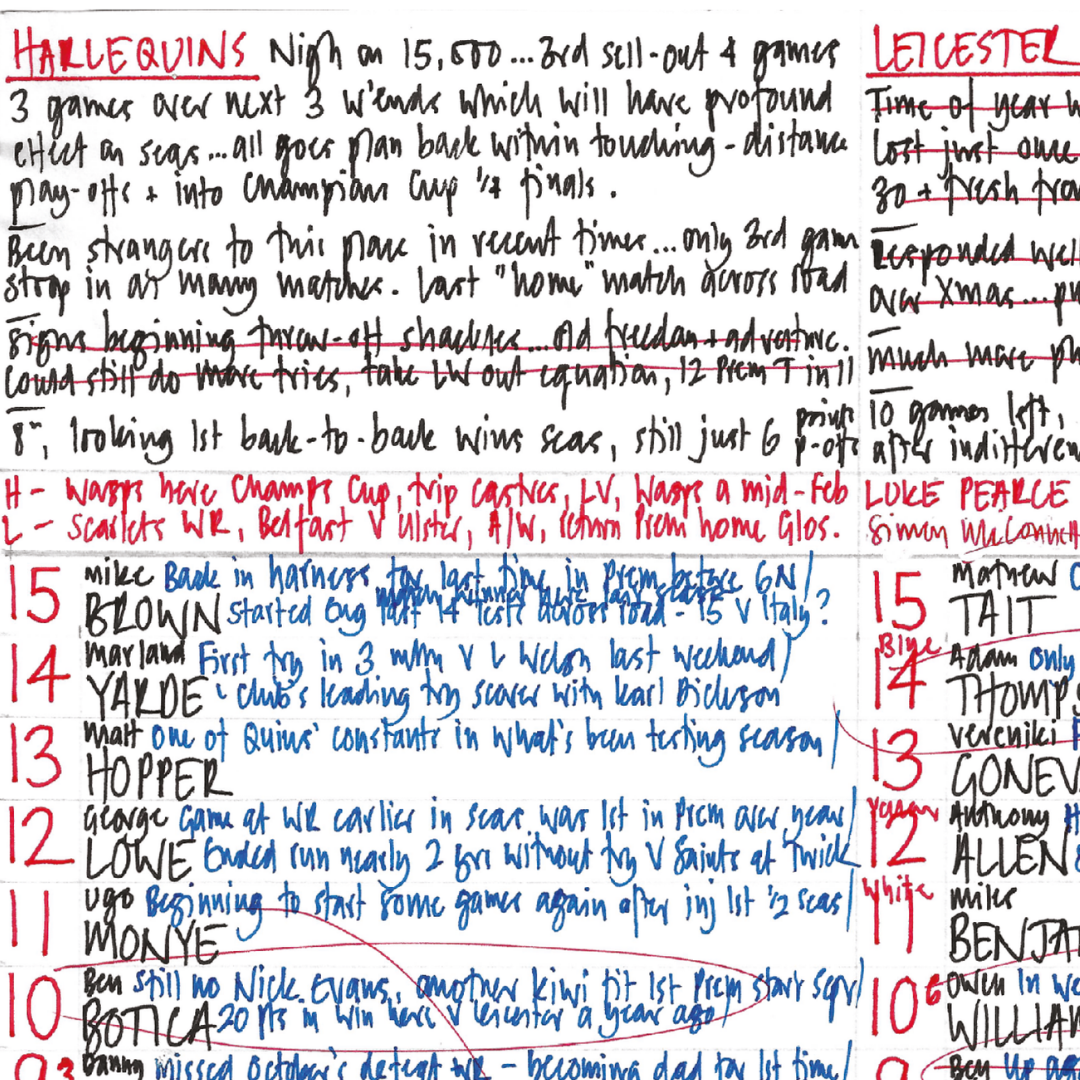 HARLEQUINS Nigh on 15,500...3rd sell-out 4 games
3 games over next 3 w'ends which will have profound
effect on seas...all goes plan back within touching-distance
play-offs + into Champions Cup 1/4 finals.
Been strangers to this place in recent times...only 3rd game
stoop in as many matches. Last "home" match across road
Signs beginning throw-off shackles...old freedom + adventure.
Could still do more tries, take LW out equation, 12 Prem T in 11
8th, looking 1st back-to-back wins seas, still just 6 points p-offs
H - Wasps here Champs Cup, trip Castres, LV, Wasps a mid-Feb
L - Scarlets WR, Belfast V Ulster, A/W, return Prem home Glos.
15 mike Back in harness for last time in Prem before 6N/
BROWN started Eng last 14 Tests across road - 15 v Italy?
14 Marland First try in 3 mths V L Welsh last weekend/
YARDE club's leading try scorer with Karl Dickson
13 Matt one of Quins' constants in what's been testing season/
HOPPER
12 George Game at WR earlier in seas was 1st in Prem over year/
LOWE Ended run nearly 2 yrs without try V Saints at Twick
11 Ugo Beginning to start some games again after inj 1st 1/2 seas/
MONYE
10 Ben still no Nick Evans, another kiwi fit 1st Prem start Sept/
BOTICA 20 pts in win here v Leicester a year ago/
9 3 Danny missed October's defeat WR - becoming dad for 1st time/
LEICESTER
Time of year
Lost just once
30 + fresh from
Responded well
over Xmas...
much more
10 games left,
after indifferen
LUKE PEARCE
Simon McConnell
15 Mathew
TAIT
Blue
14 Adam only
THOMPS
13 Vereniki
GONEV
12 Anthony
ALLEN
White
11 miles
BENJA
10 6 Owen In
WILLIA
9 Ben Up